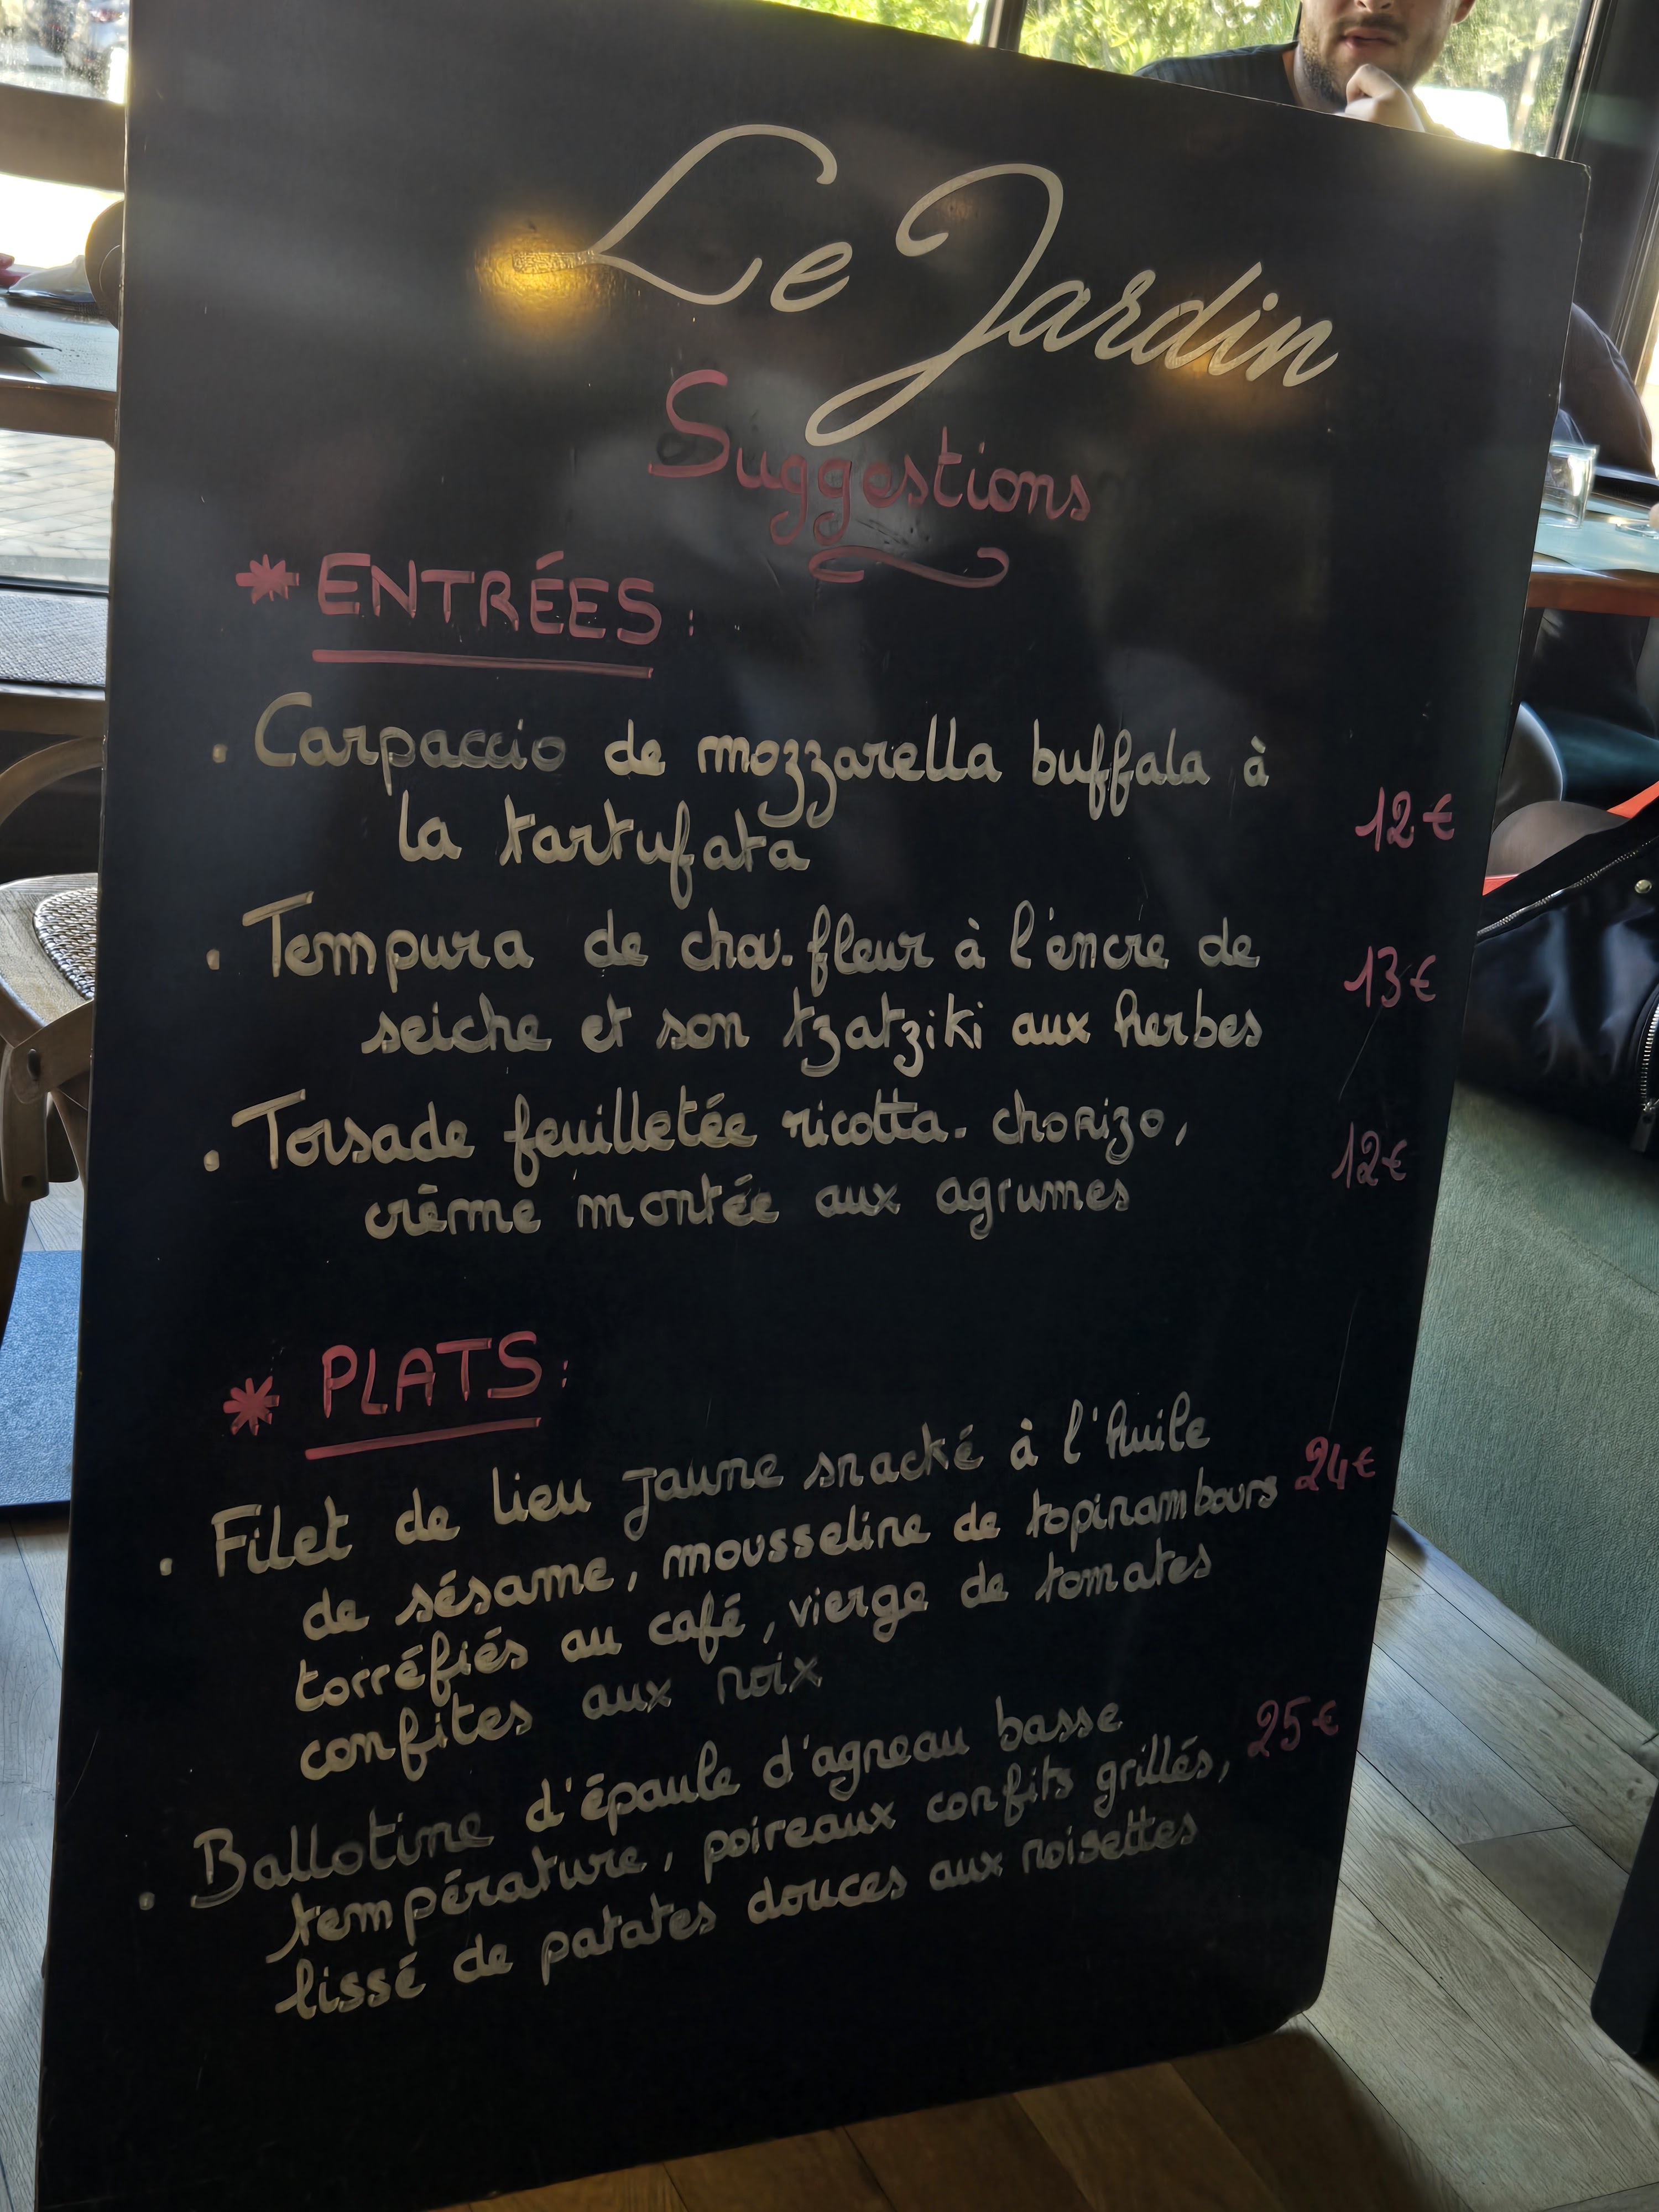 Le Jardin
Suggestions
* ENTRÉES :
. Carpaccio de mozzarella buffala à
la tartufata 12€
. Tempura de chou.fleur à l'encre de
seiche et son tzatziki aux herbes 13€
. Torsade feuilletée ricotta. chorizo,
crème montée aux agrumes 12€
* PLATS :
. Filet de lieu jaune snacké à l'huile
de sésame, mousseline de topinambours 24€
torréfiés au café, vierge de tomates
confites aux noix
. Ballotine d'épaule d'agneau basse
température, poireaux confits grillés, 25€
lissé de patates douces aux noisettes